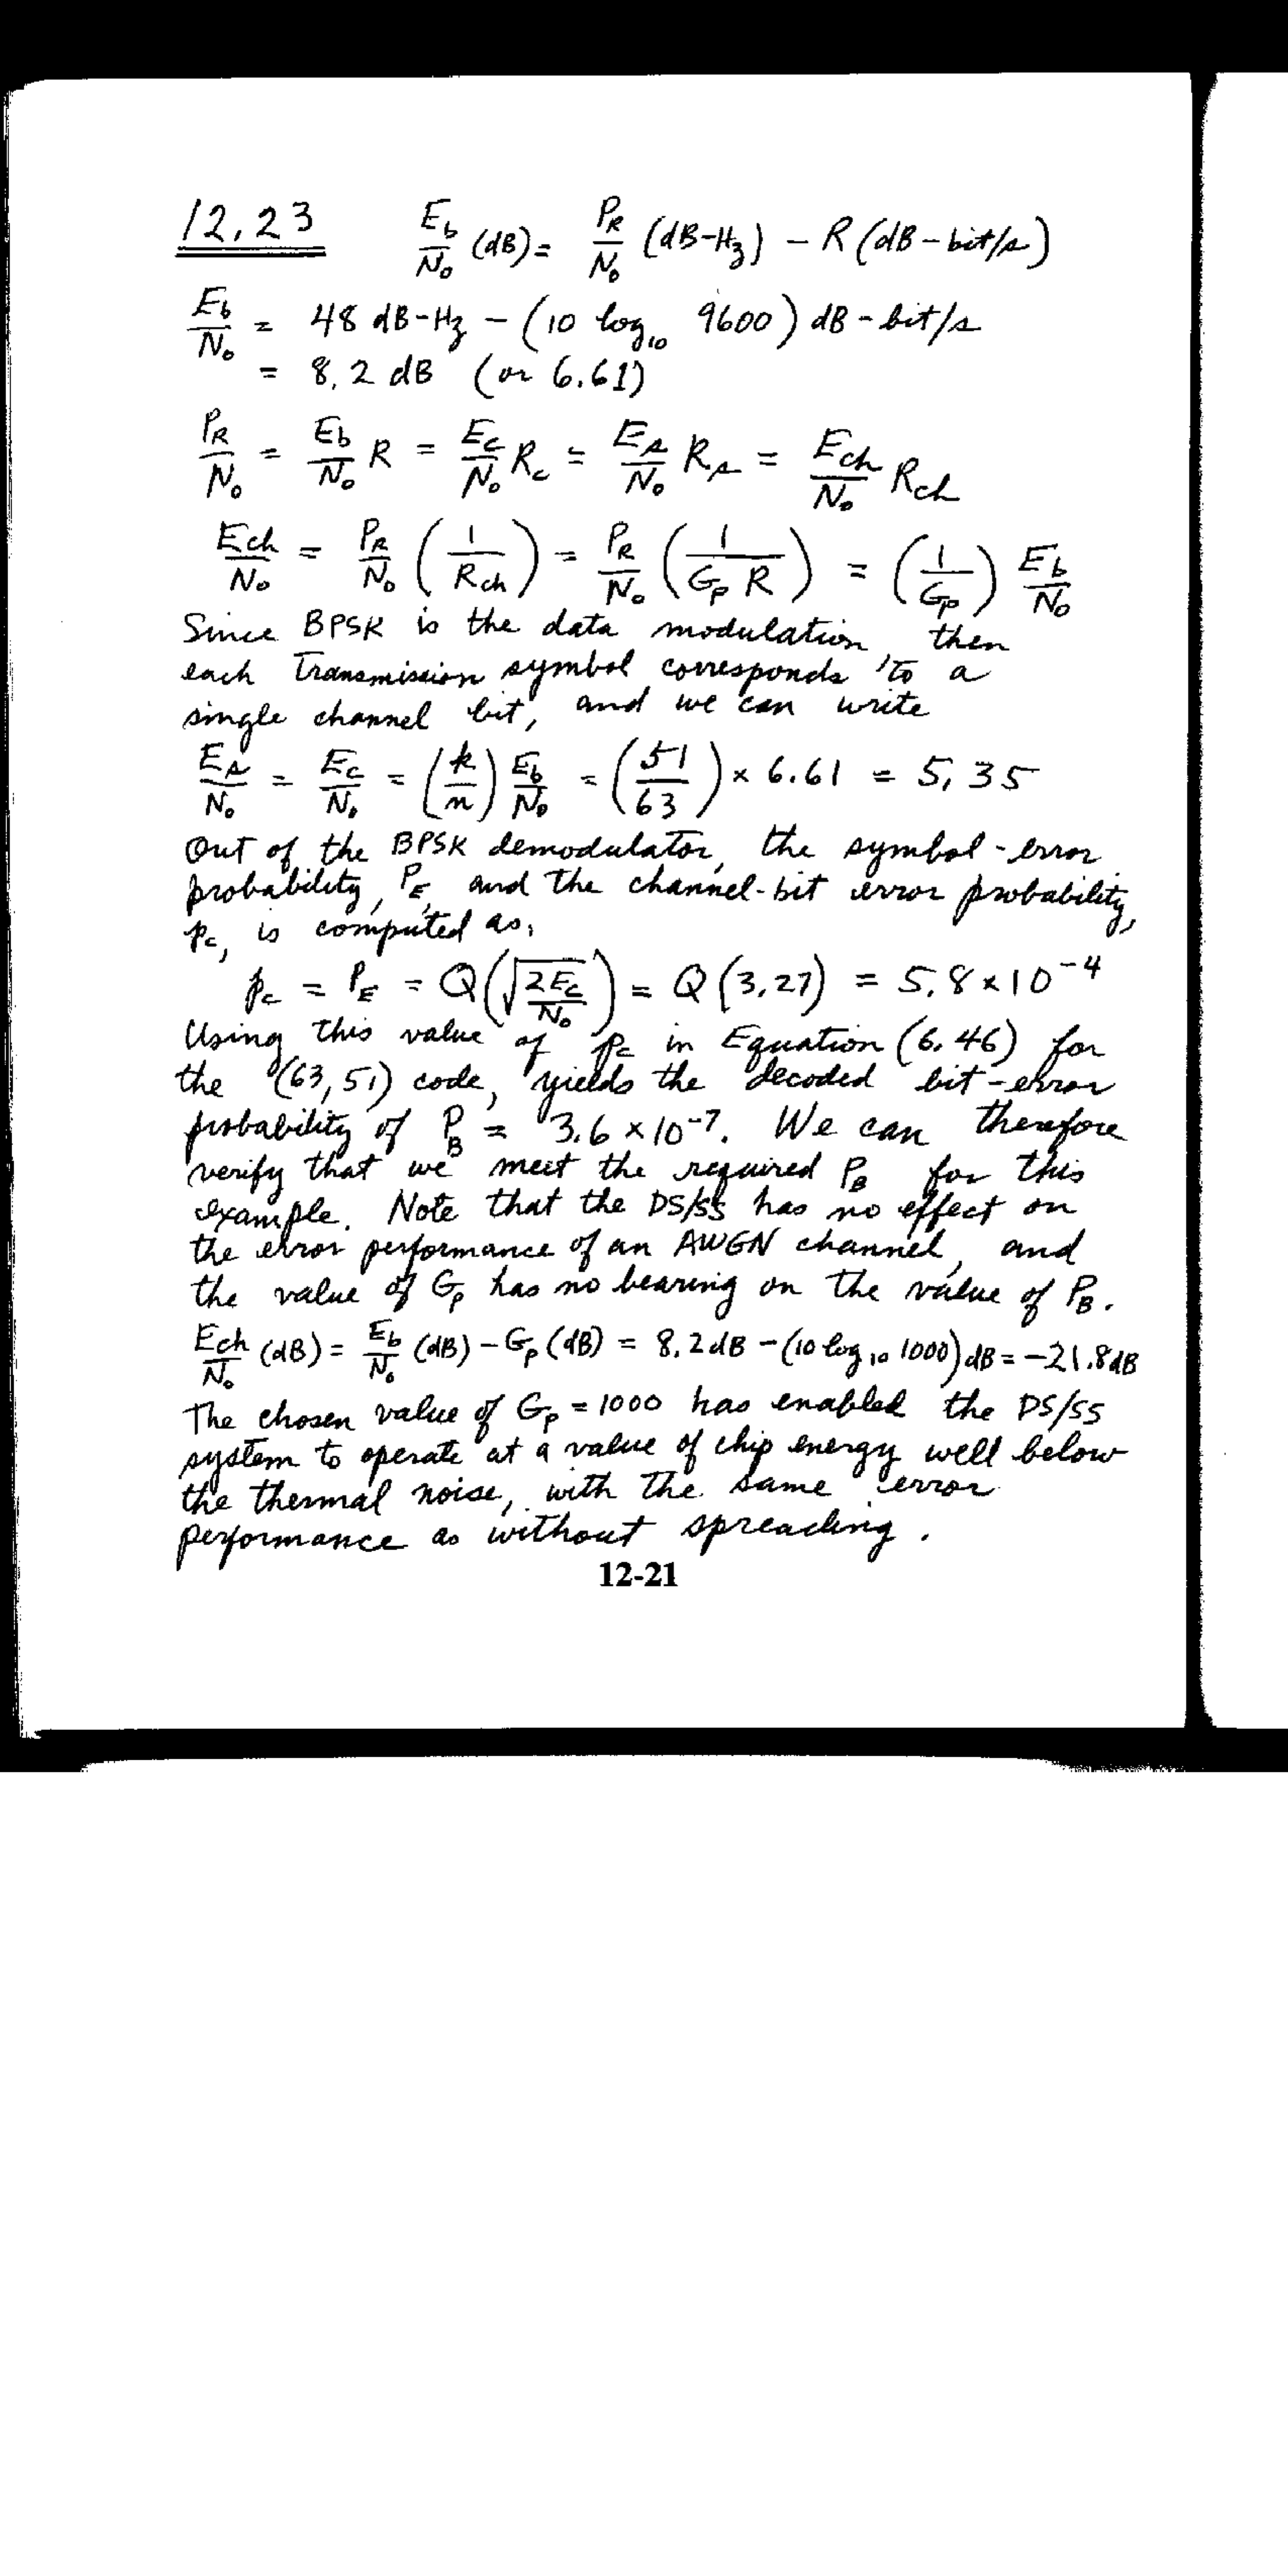 12.23 E_b/N_0 (dB) = P_R/N_0 (dB-Hz) - R (dB-bit/s)
E_b/N_0 = 48 dB-Hz - (10 log_10 9600) dB-bit/s
= 8.2 dB (or 6.61)
P_R/N_0 = E_b/N_0 R = E_c/N_0 R_c = E_s/N_0 R_s = E_ch/N_0 R_ch
E_ch/N_0 = P_R/N_0 (1/R_ch) = P_R/N_0 (1/(G_p R)) = (1/G_p) E_b/N_0
Since BPSK is the data modulation, then
each transmission symbol corresponds to a
single channel bit, and we can write
E_s/N_0 = E_c/N_0 = (k/n) E_b/N_0 = (51/63) × 6.61 = 5.35
Out of the BPSK demodulator, the symbol-error
probability, P_E, and the channel-bit error probability,
p_c, is computed as:
p_c = P_E = Q(√(2E_c/N_0)) = Q(3.27) = 5.8 × 10^-4
Using this value of p_c in Equation (6.46) for
the (63,51) code, yields the decoded bit-error
probability of P_B = 3.6 × 10^-7. We can therefore
verify that we meet the required P_B for this
example. Note that the DS/SS has no effect on
the error performance of an AWGN channel, and
the value of G_p has no bearing on the value of P_B.
E_ch/N_0 (dB) = E_b/N_0 (dB) - G_p (dB) = 8.2 dB - (10 log_10 1000) dB = -21.8 dB
The chosen value of G_p = 1000 has enabled the DS/SS
system to operate at a value of chip energy well below
the thermal noise, with the same error
performance as without spreading.
12-21